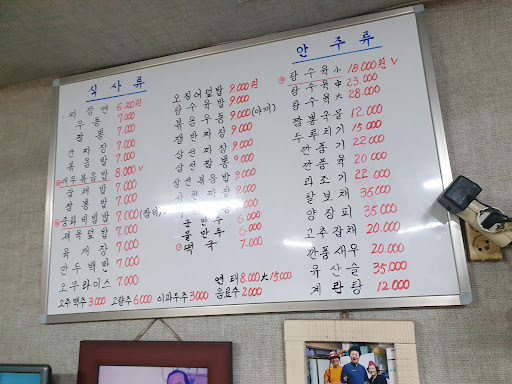 식사류
짜장면 6.000원
우동 7.000
짬뽕 7.000
간짜장 7.000
볶음밥 7.000
새우볶음밥 8.000 V
잡채밥 7.000
짬뽕밥 7.000
중화비빔밥 7.000
제육덮밥 7.000
육개장 7.000
만두백반 7.000
오무라이스 7.000
오징어덮밥 9.000원
탕수육밥 9.000
볶음우동 9.000 (야끼)
쟁반짜장 9.000
삼선짜장 9.000
삼선짬뽕 9.000
삼선볶음밥 9.000
사천짜장 9.000
군만두 6.000
물만두 6.000
떡국 7.000
안주류
탕수육 小 18.000원 V
탕수육 中 23.000
탕수육 大 28.000
짬뽕국물 12.000
두루치기 15.000
깐풍기 22.000
깐풍육 20.000
라조기 22.000
잡채 35.000
양장피 35.000
고추잡채 20.000
깐풍새우 20.000
유산슬 35.000
계란탕 12.000
소주맥주 3.000 고량주 6.000 이과두주 3.000 음료수 2.000
연태 8.000 大 15.000